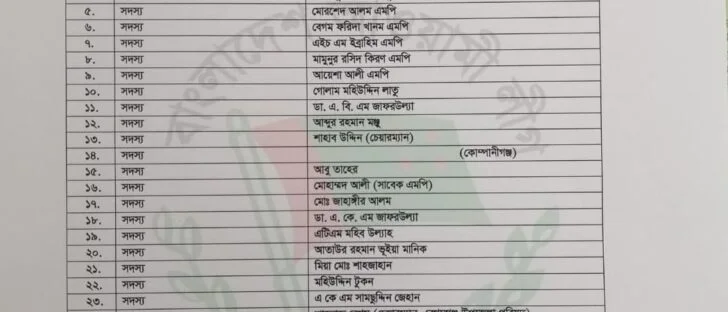 ৫. সদস্য মোরশেদ আলম এমপি
৬. সদস্য বেগম ফরিদা খানম এমপি
৭. সদস্য এইচ এম ইব্রাহিম এমপি
৮. সদস্য মামুনুর রসিদ কিরণ এমপি
৯. সদস্য আয়েশা আলী এমপি
১০. সদস্য গোলাম মহিউদ্দিন লাতু
১১. সদস্য ডা. এ. বি. এম জাফরউল্যা
১২. সদস্য আব্দুর রহমান মঞ্জু
১৩. সদস্য শাহাব উদ্দিন (চেয়ারম্যান)
১৪. সদস্য (কোম্পানীগঞ্জ)
১৫. সদস্য আবু তাহের
১৬. সদস্য মোহাম্মদ আলী (সাবেক এমপি)
১৭. সদস্য মোঃ জাহাঙ্গীর আলম
১৮. সদস্য ডা. এ. কে. এম জাফরউল্যা
১৯. সদস্য এটিএম মহিব উল্যাহ
২০. সদস্য আতাউর রহমান ভূইয়া মানিক
২১. সদস্য মিয়া মোঃ শাহজাহান
২২. সদস্য মহিউদ্দিন টুকন
২৩. সদস্য এ কে এম সামছুদ্দিন জেহান
বাংলাদেশ আওয়ামী লীগ